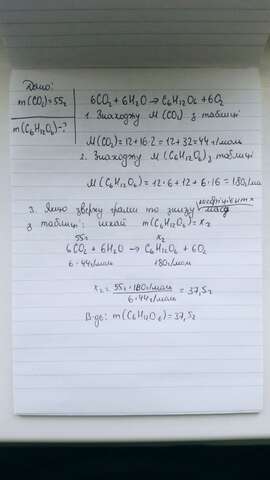 Дано:
m(CO₂)=55г
m(C₆H₁₂O₆)-?
6CO₂+6H₂O→C₆H₁₂O₆+6O₂
1. Знаходжу M(CO₂) з таблиці
M(CO₂)=12+16·2=12+32=44г/моль
2. Знаходжу M(C₆H₁₂O₆) з таблиці
M(C₆H₁₂O₆)=12·6+12+6·16=180г/мо
3. Якщо зверху грами то знизу коефіцієнт×
з таблиці: нехай m(C₆H₁₂O₆)=xг
55г xг
6CO₂+6H₂O→C₆H₁₂O₆+6O₂
6·44г/моль 180г/моль
xг=55г·180г/моль/6·44г/моль=37,5г
В-дь: m(C₆H₁₂O₆)=37,5г